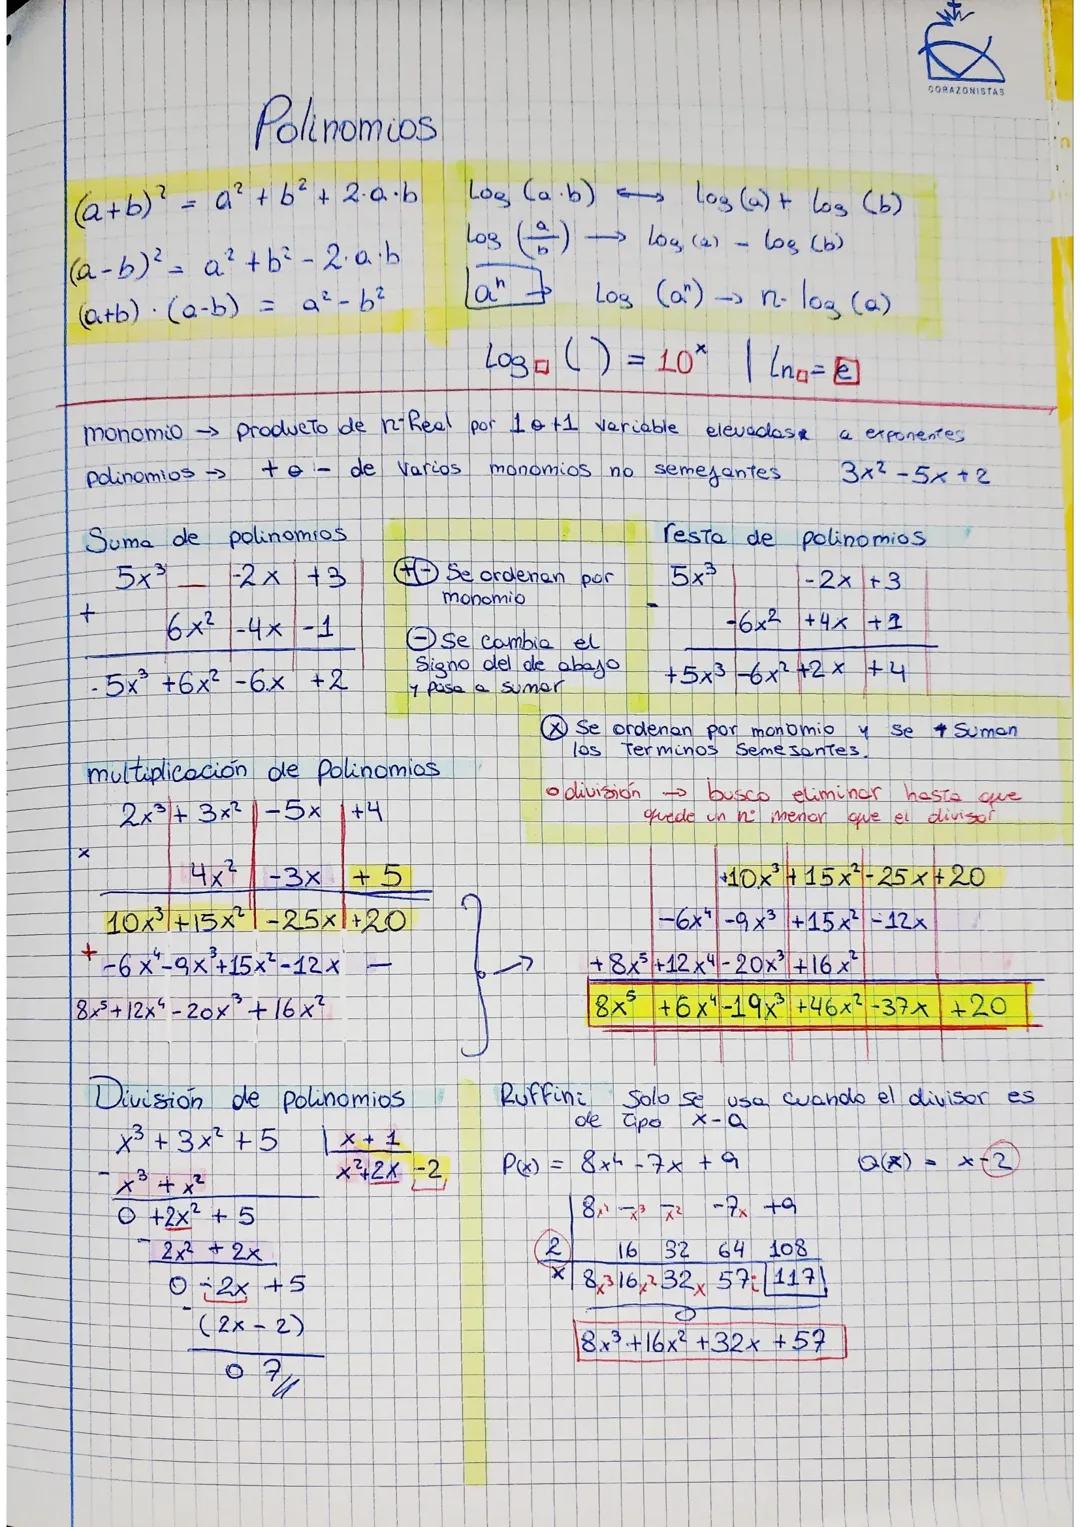 CORAZONISTAS
Polinomios
(a+b)² = a² + b² + 2·a·b
(a-b)² = a² + b² - 2·a·b
(a+b)·(a-b) = a² - b²
Log (a·b) ⟷ log (a) + log (b)
Log (a/b) → log (a) - log (b)
aⁿ → Log (aⁿ) → n·log (a)
Log□ ( ) = 10ˣ | Ln□ = e
monomio → producto de nºReal por 1 o +1 variable elevadas a exponentes
polinomios → + o - de varios monomios no semejantes 3x² - 5x + 2
Suma de polinomios
5x³ -2x +3
+
6x² -4x -1
-5x³ +6x² -6x +2
(+)(-) Se ordenan por
monomio
(-) Se cambia el
signo del de abajo
y pasa a sumar
resta de polinomios
5x³ -2x +3
-
-6x² +4x +1
+5x³ -6x² +2x +4
(x) Se ordenan por monomio y se + suman
los terminos semejantes.
o división → busco eliminar hasta que
quede un nº menor que el divisor
multiplicación de polinomios
2x³ + 3x² -5x +4
x
4x² -3x +5
10x³ +15x² -25x +20
+
-6x⁴ -9x³ +15x² -12x —
8x⁵ +12x⁴ -20x³ +16x²
→
+10x³ +15x² -25x +20
-6x⁴ -9x³ +15x² -12x
+8x⁵ +12x⁴ -20x³ +16x²
8x⁵ +6x⁴ -19x³ +46x² -37x +20
División de polinomios
x³ + 3x² + 5 | x + 1
- x³ + x² x² + 2x - 2
0 +2x² + 5
- 2x² + 2x
0 -2x +5
- (2x - 2)
0 7//
Ruffini Solo se usa cuando el divisor es
de tipo x-a
P(x) = 8x⁴ - 7x + 9 Q(x) = x-2
8x⁴ -x³ -x² -7x +9
2 16 32 64 108
x 8x³ 16x² 32x 57 117
8x³ +16x² +32x +57